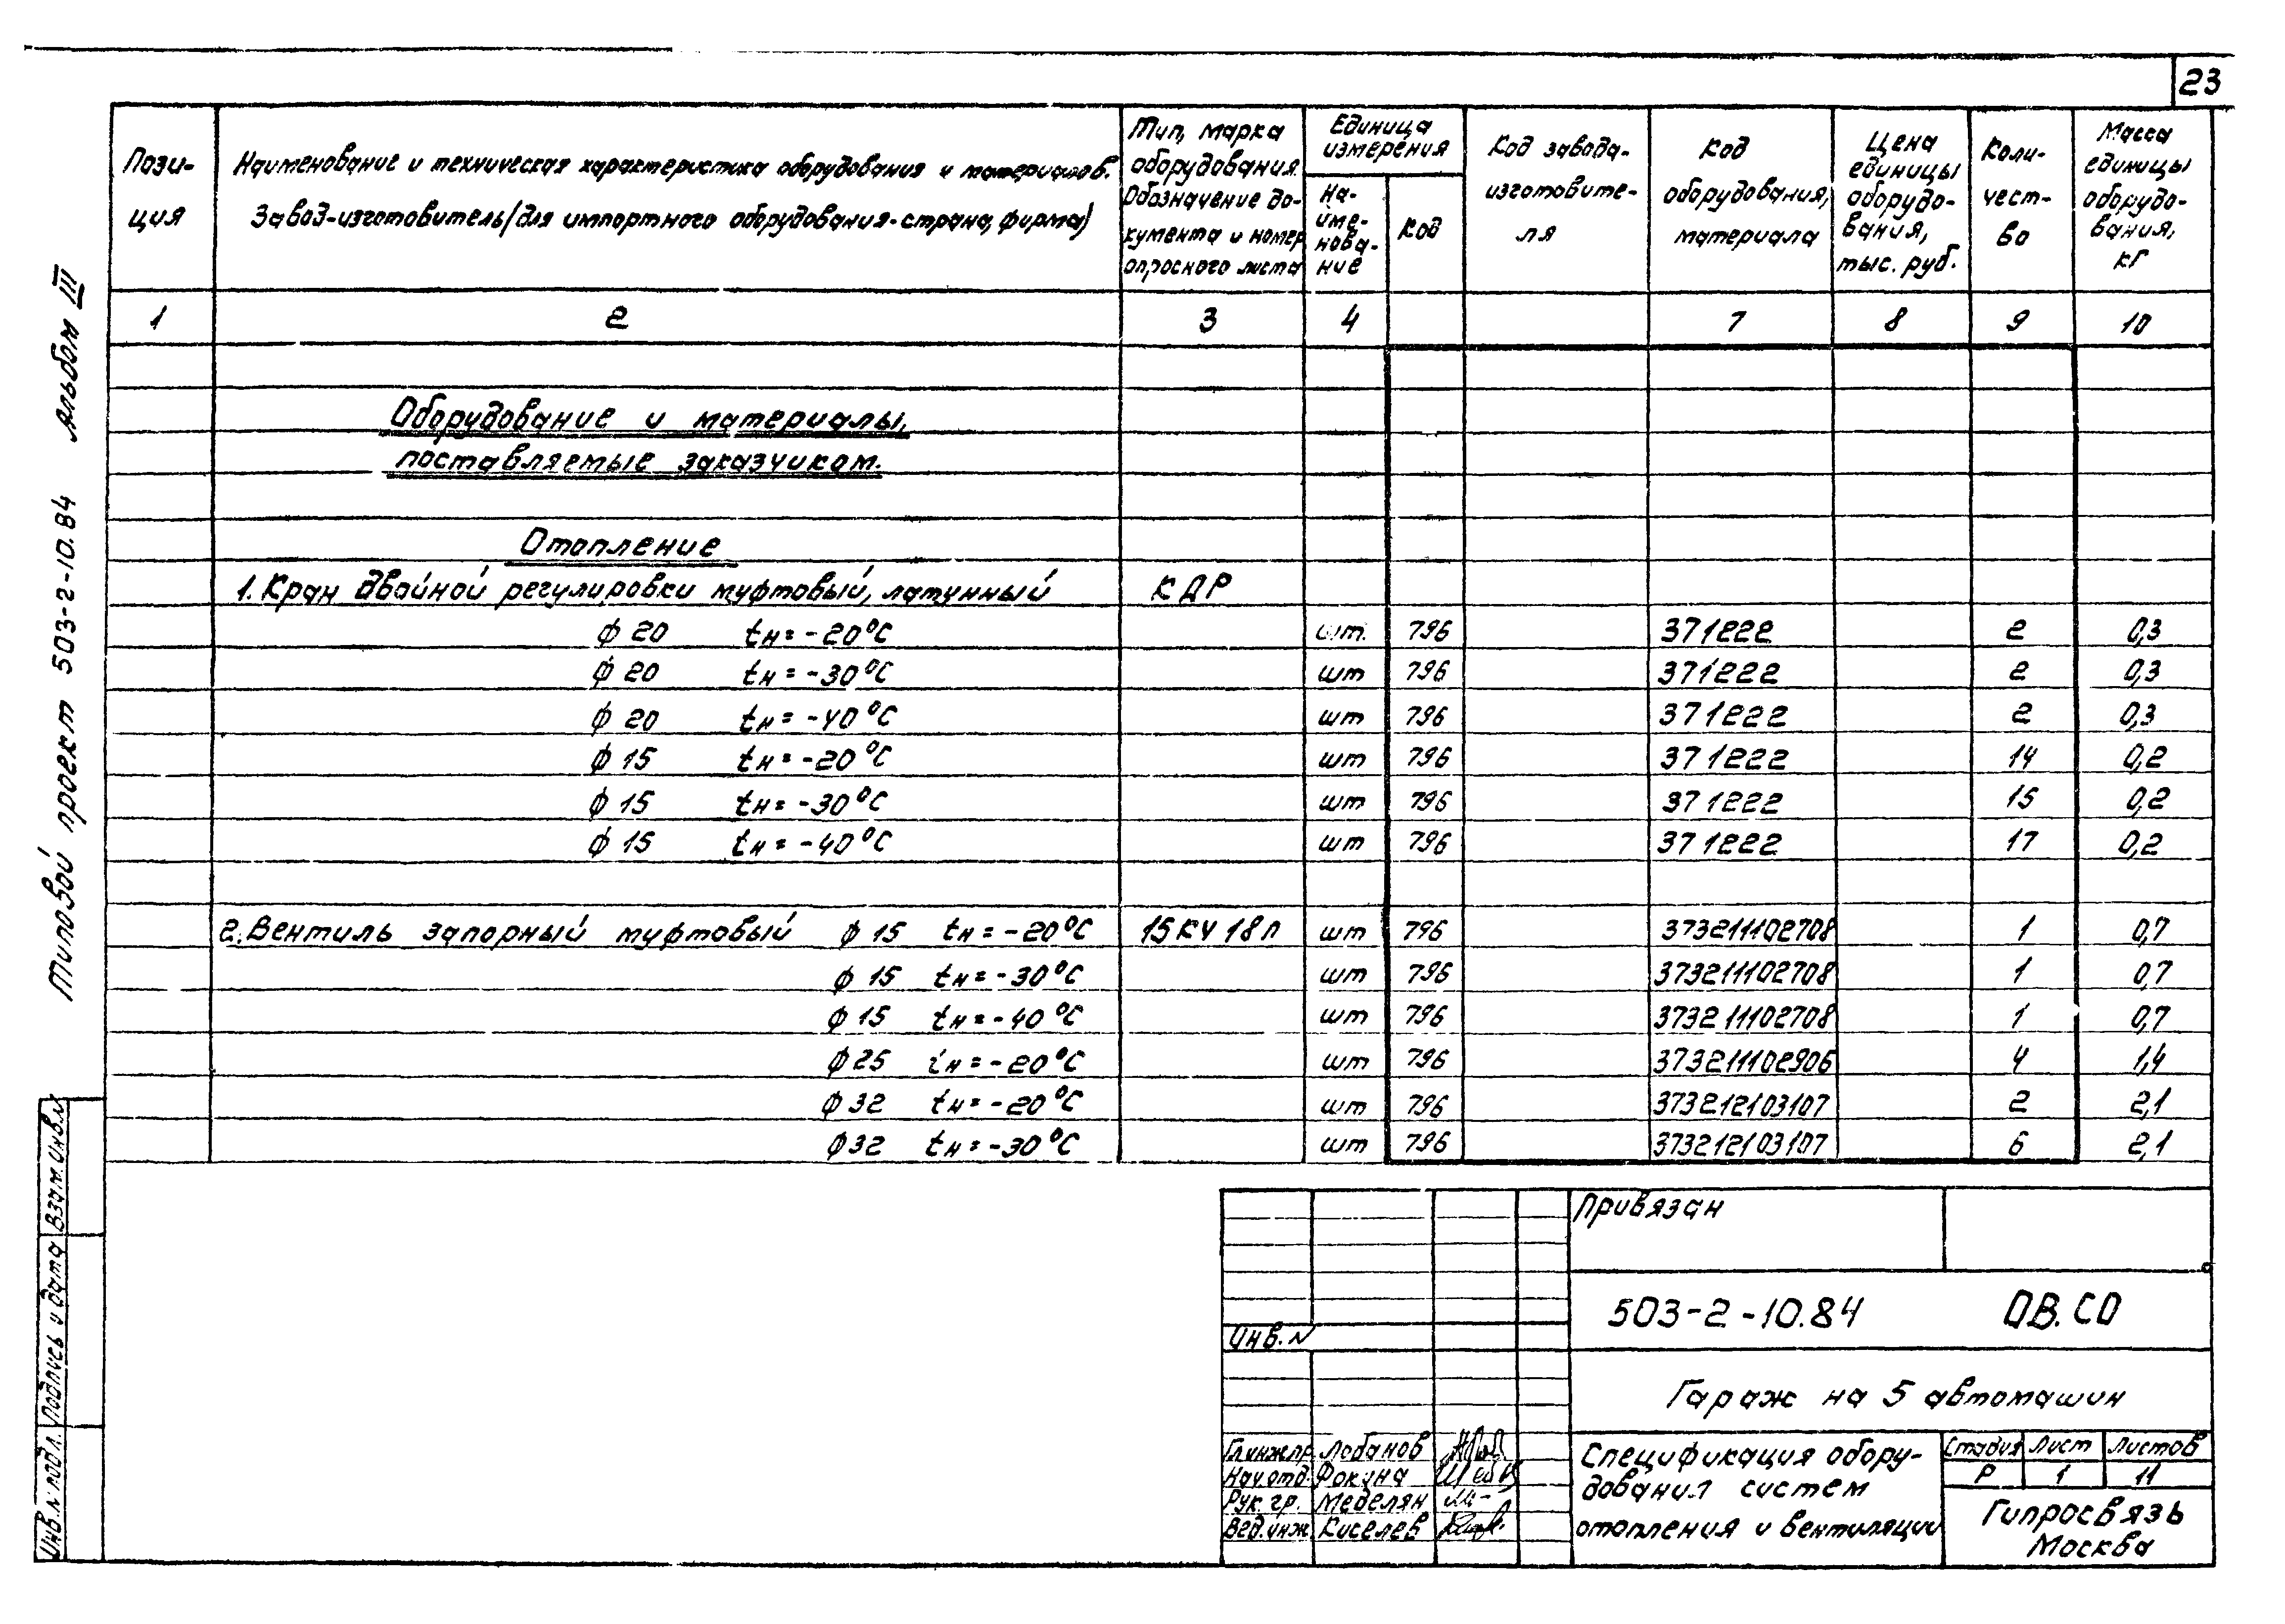 23
Пози-
ция
Наименование и техническая характеристика оборудования и материалов.
Завод-изготовитель (для импортного оборудования - страна, фирма)
Тип, марка
оборудования.
Обозначение до-
кумента и номер
опросного листа
Единица
измерения
На-
име-
нова-
ние
Код
Код завода-
изготовите-
ля
Код
оборудования,
материала
Цена
единицы
оборудо-
вания,
тыс. руб.
Коли-
чест-
во
Масса
единицы
оборудо-
вания,
кг
1 2 3 4 7 8 9 10
Оборудование и материалы,
поставляемые заказчиком.
Отопление
1. Кран двойной регулировки муфтовый, латунный КДР
ф 20 tн = -20°С шт. 796 371222 2 0,3
ф 20 tн = -30°С шт 796 371222 2 0,3
ф 20 tн = -40°С шт 796 371222 2 0,3
ф 15 tн = -20°С шт 796 371222 14 0,2
ф 15 tн = -30°С шт 796 371222 15 0,2
ф 15 tн = -40°С шт 796 371222 17 0,2
2. Вентиль запорный муфтовый ф 15 tн = -20°С 15КЧ18П шт 796 373211102708 1 0,7
ф 15 tн = -30°С шт 796 373211102708 1 0,7
ф 15 tн = -40°С шт 796 373211102708 1 0,7
ф 25 tн = -20°С шт 796 373211102906 4 1,4
ф 32 tн = -20°С шт 796 373212103107 2 2,1
ф 32 tн = -30°С шт 796 373212103107 6 2,1
Типовой проект 503-2-10.84 Альбом III
Инв. N подл. Подпись и дата Взам. инв. N
Привязан
Инв. N
503-2-10.84 ОВ.СО
Гараж на 5 автомашин
Гл. инж. пр. Лобанов
Нач. отд. Фокина
Рук. гр. Меделян
Вед. инж. Киселев
Спецификация обору-
дования систем
отопления и вентиляции
Стадия Лист Листов
Р 1 11
Гипросвязь
Москва